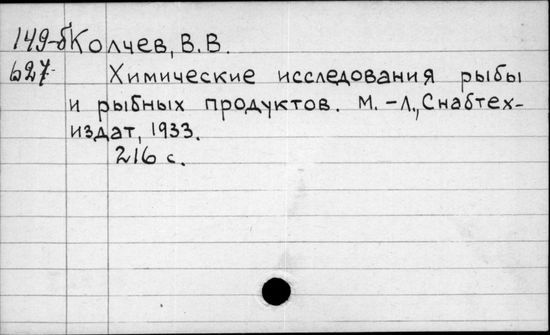 149-б Колчев, В.В.
627 Химические исследования рыбы
и рыбных продуктов. М.-Л., Снабтех-
издат, 1933.
216 с.